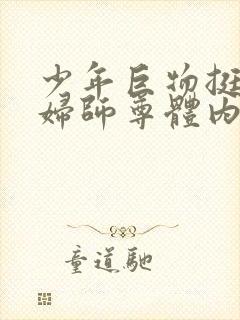 少年巨物挺
婦師尊體內
童道馳